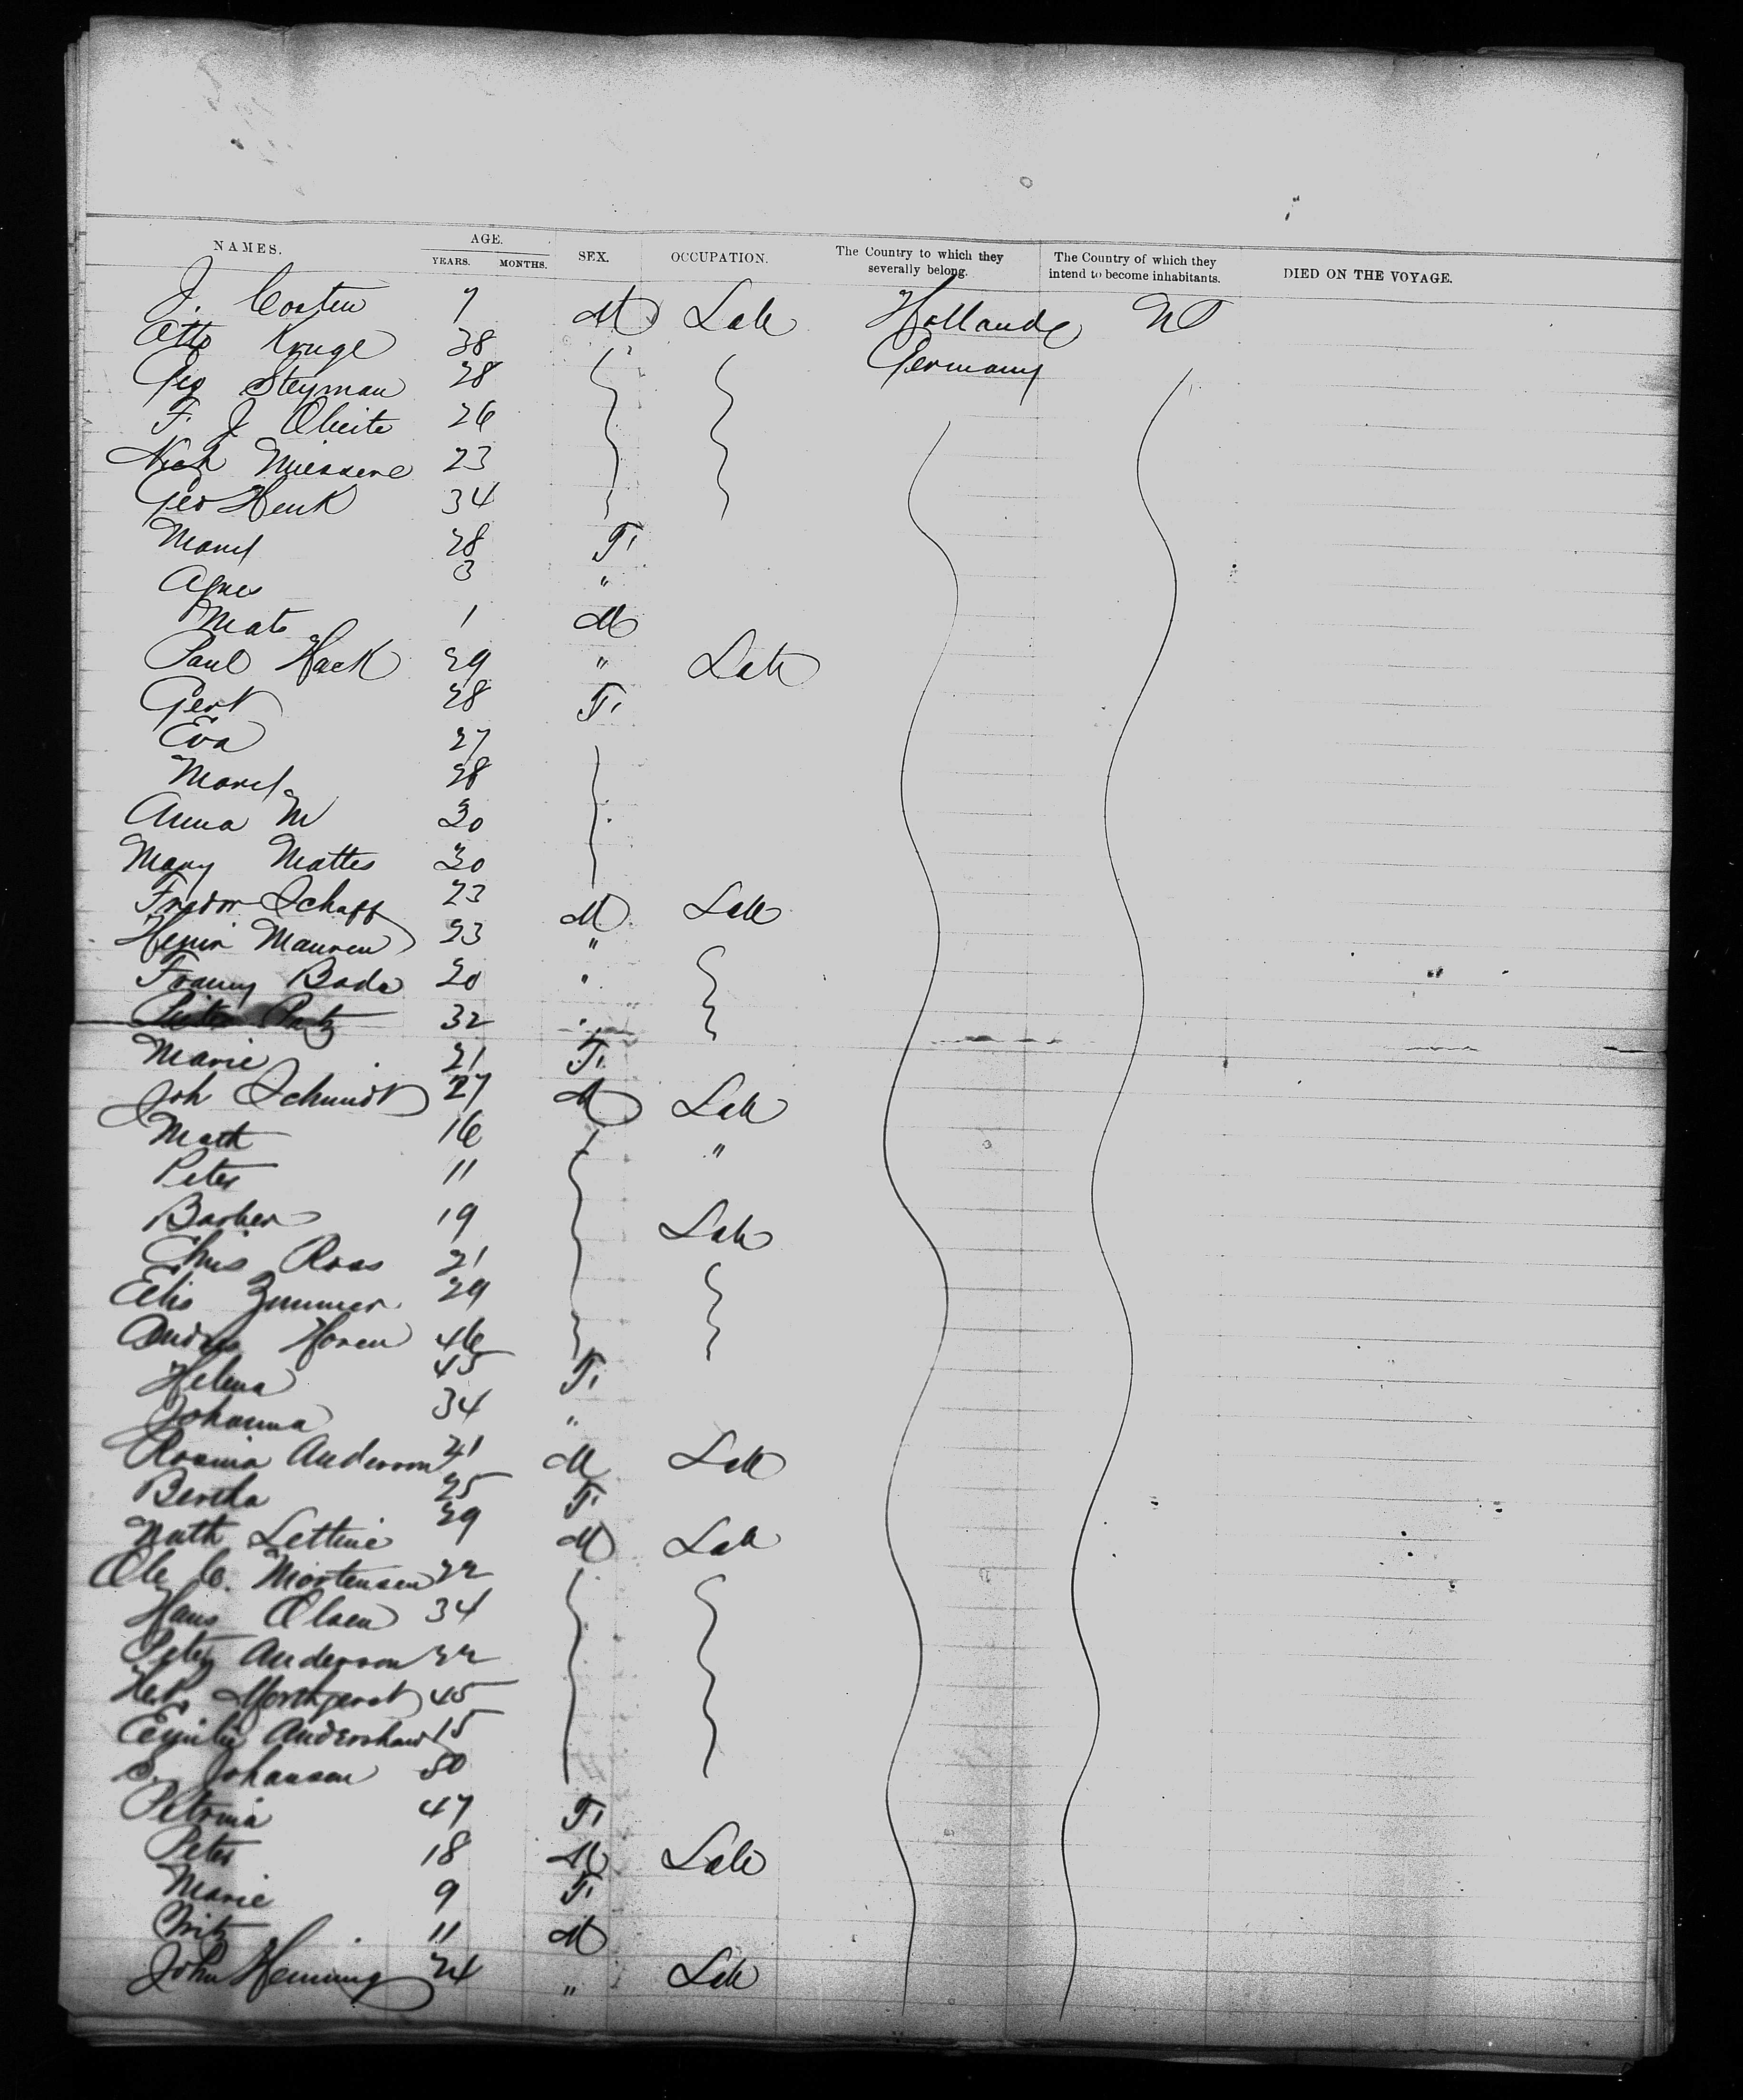 NAMES. AGE. YEARS. MONTHS. SEX. OCCUPATION. The Country to which they severally belong. The Country of which they intend to become inhabitants. DIED ON THE VOYAGE.
J. Costen 7 M Lab Holland
Otto Kruge 38 Germany
Geo Steyman 28
F. J 26
Nich 23
Geo Henk 34
Mary 28 F.
Agnes 3 "
Mats 1 M
Paul Hack 29 " Lab
Gert 28 F.
Eva 27
Mary 28
Anna M 30
Mary Mattes 30
Schaff 23 M Lab
Mauren 23 "
Franny Bada 20 "
32 "
Marie 21 F.
Joh Schmidt 27 M Lab
Math 16 "
Peter 11
Barber 19 Lab
Chris Roas 21
Zimmer 29
Andres Horen 46
Helena 45 F.
Johanna 34 "
Anderson 21 M Lab
Bertha 25 F.
Math Lettine 29 M Lab
Ole C. Mortensen 22
Hans Olsen 34
Peter Anderson 22
45
Emilie 15
S. Johansen 50
Petrina 47 F.
Peter 18 M Lab
Marie 9 F.
Fritz 11 M
John Henning 24 " Lab